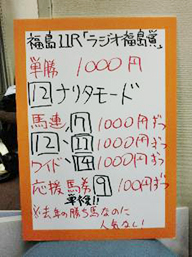 福島11R「ラジオ福島賞」
単勝 1000円
12 ナリタモード
馬連 7 1000円ずつ
12 - 11 1000円ずつ
ワイド 14 1000円ずつ
応援馬券 9 100円ずつ
単複!!
※去年の勝ち馬なのに
人気ない